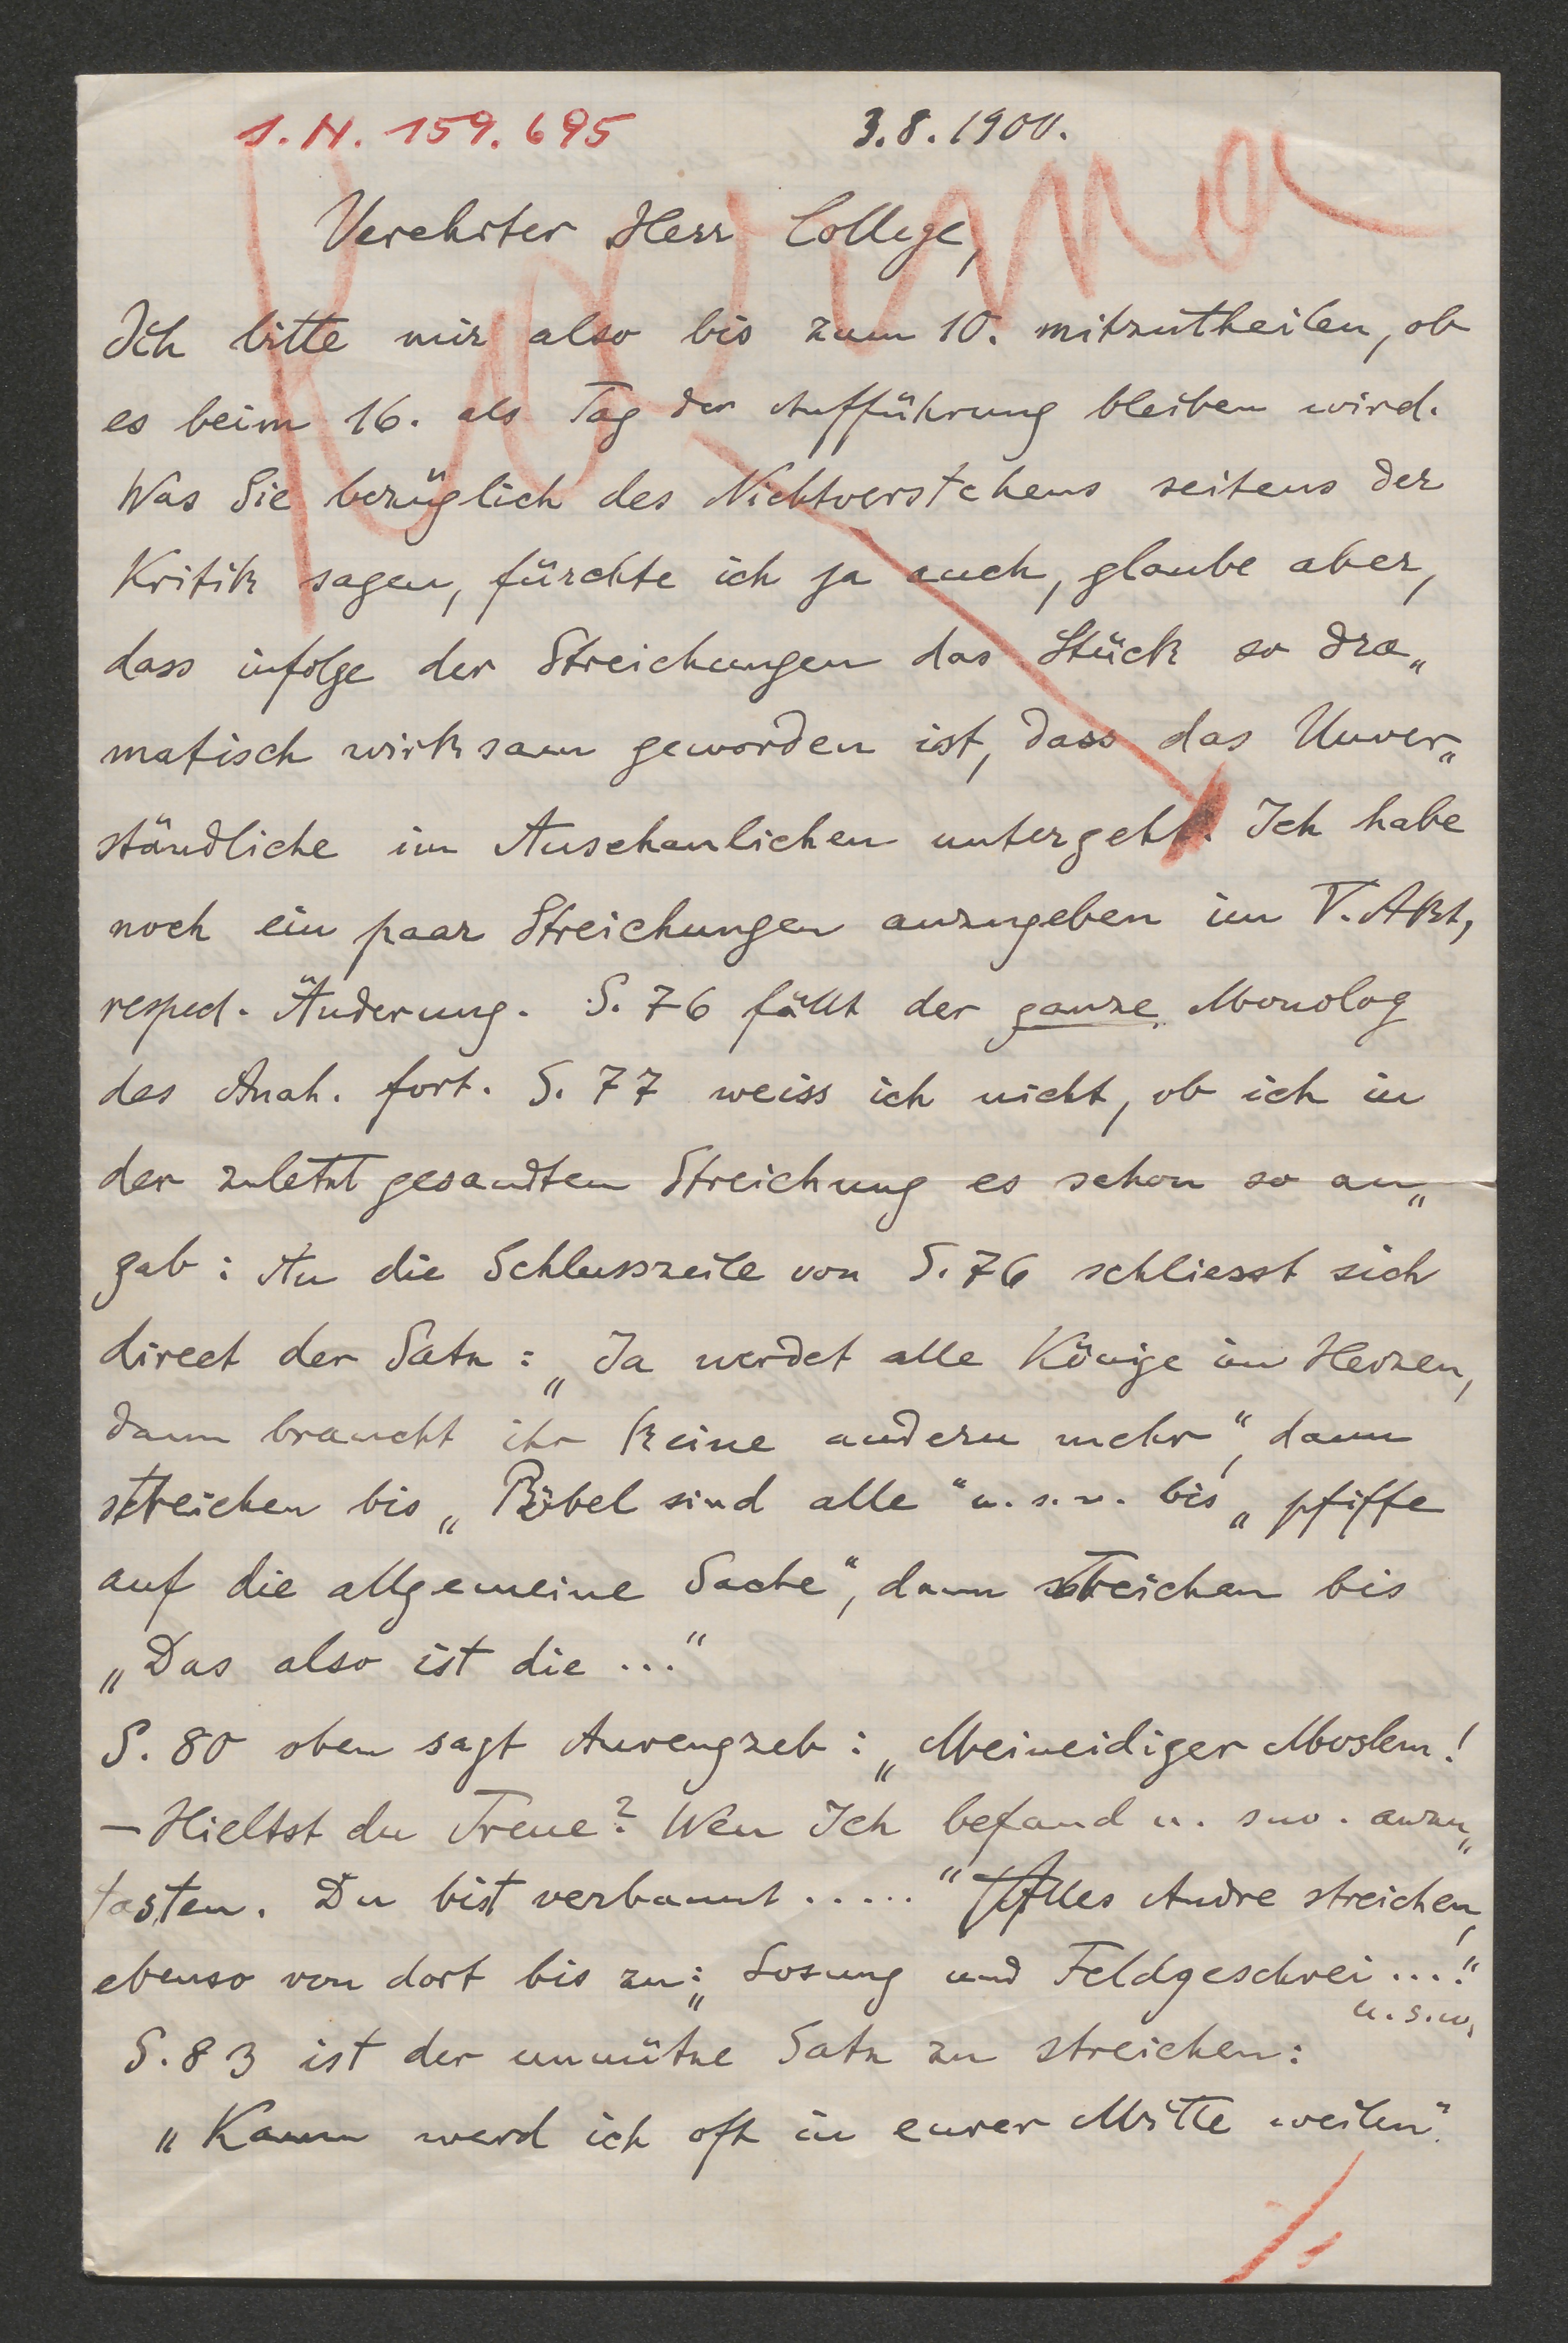 I.N. 159.695 3.8.1900.
Verehrter Herr College,
Ich bitte mir also bis zum 10. mitzutheilen, ob
es beim 16. als Tag der Aufführung bleiben wird.
Was Sie bezüglich des Nichtverstehens seitens der
Kritik sagen, fürchte ich ja auch, glaube aber,
dass infolge der Streichungen das Stück so dra„
matisch wirksam geworden ist, dass das Unver„
ständliche im Anschaulichen untergeht. Ich habe
noch ein paar Streichungen anzugeben im V. Akt,
respect. Änderung. S. 76 fällt der ganze Monolog
des Anah. fort. S. 77 weiss ich nicht, ob ich in
der zuletzt gesandten Streichung es schon so an„
gab: An die Schlusszeile von S. 76 schliesst sich
direct der Satz: „Ja werdet alle Könige im Herzen,
dann braucht ihr keine andern mehr“, dann
streichen bis „Pöbel sind alle“ u. s. w. bis „pfiffe
auf die allgemeine Sache“, dann streichen bis
„Das also ist die ...“
S. 80 oben sagt Aurengzeb: „Meineidiger Moslem!
– Hieltst du Treue? Wen Ich befand u. sw. anzu„
tasten. Du bist verbannt .....“ Alles Andre streichen,
ebenso von dort bis zu: „Losung und Feldgeschrei ...!“
u. s. w.
S. 83 ist der unnütze Satz zu streichen:
„Kaum werd ich oft in eurer Mitte weilen“.